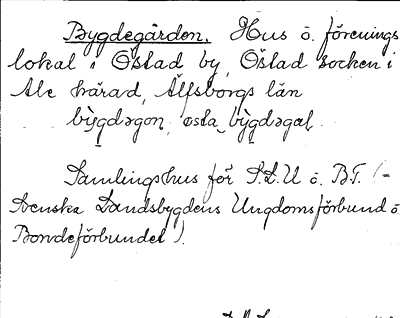 Bygdegården. Hus o. förenings
lokal i Östad by, Östad socken i
Ale härad, Älfsborgs län
bỳgdəgɑn, østa bỳgdəgɑl.
Samlingshus för S.L.U o. B.F. (=
Svenska Landsbygdens Ungdomsförbund o.
Bondeförbundet).